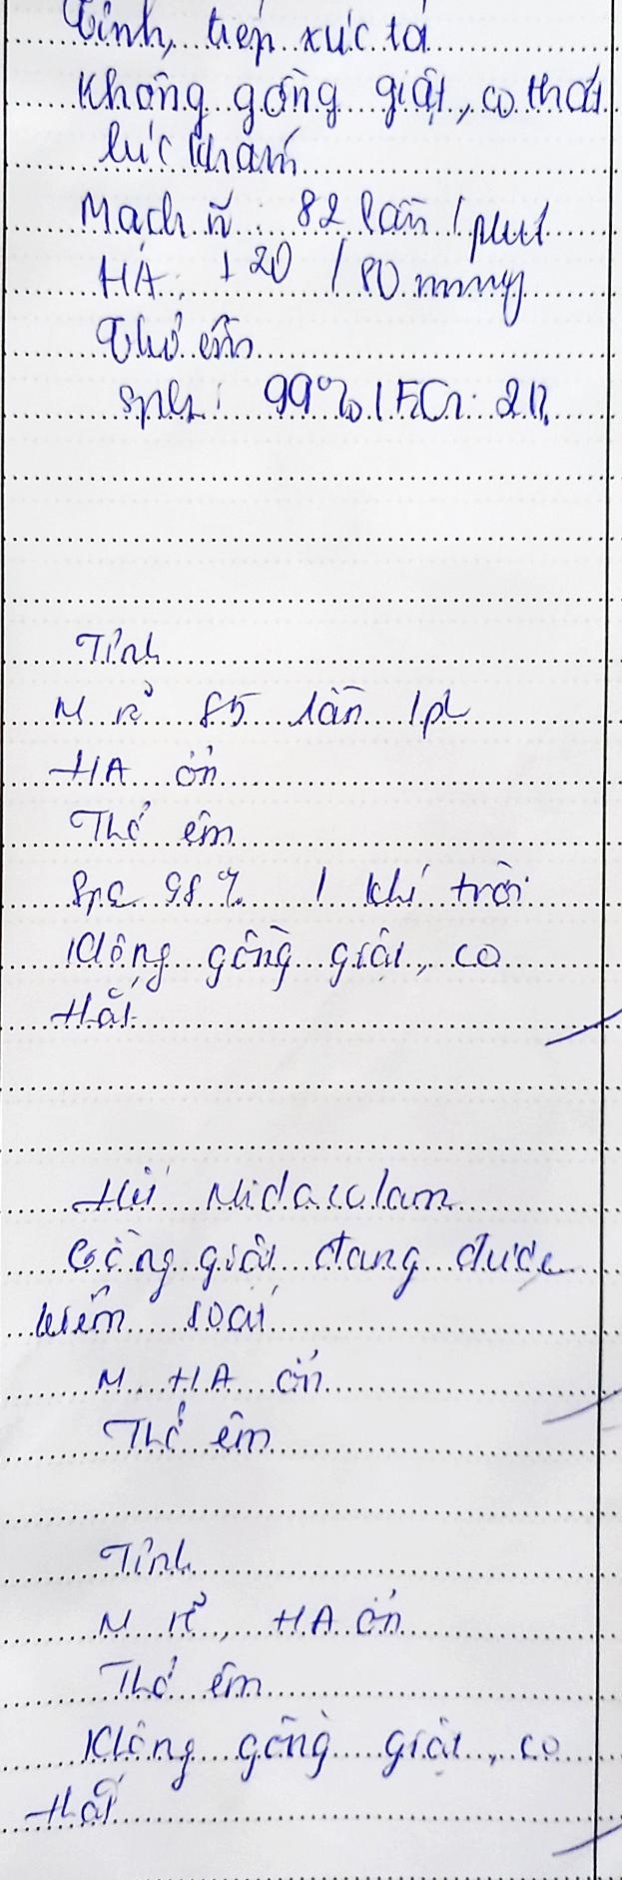 Tỉnh, tiếp xúc tá
Không gồng giật, co thắt
lúc khám
Mạch rõ: 82 lần / phút
HA: 120 / 80 mmHg
Thở êm
SpO2: 99% / FiO2: 21%
Tỉnh
M rõ 85 lần /ph
HA ổn
Thở êm
SpO2 98% / khí trời
Không gồng giật, co
thắt
Midazolam
Gồng giật đang được
kiểm soát
M, HA ổn
Thở êm
Tỉnh
M rõ, HA ổn
Thở êm
Không gồng giật, co
thắt